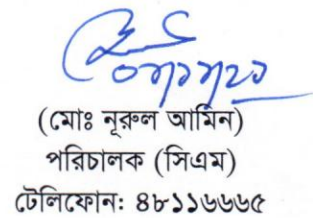 (মোঃ নূরুল আমিন)
পরিচালক (সিএম)
টেলিফোন: ৪৮১১৬৬৬৫